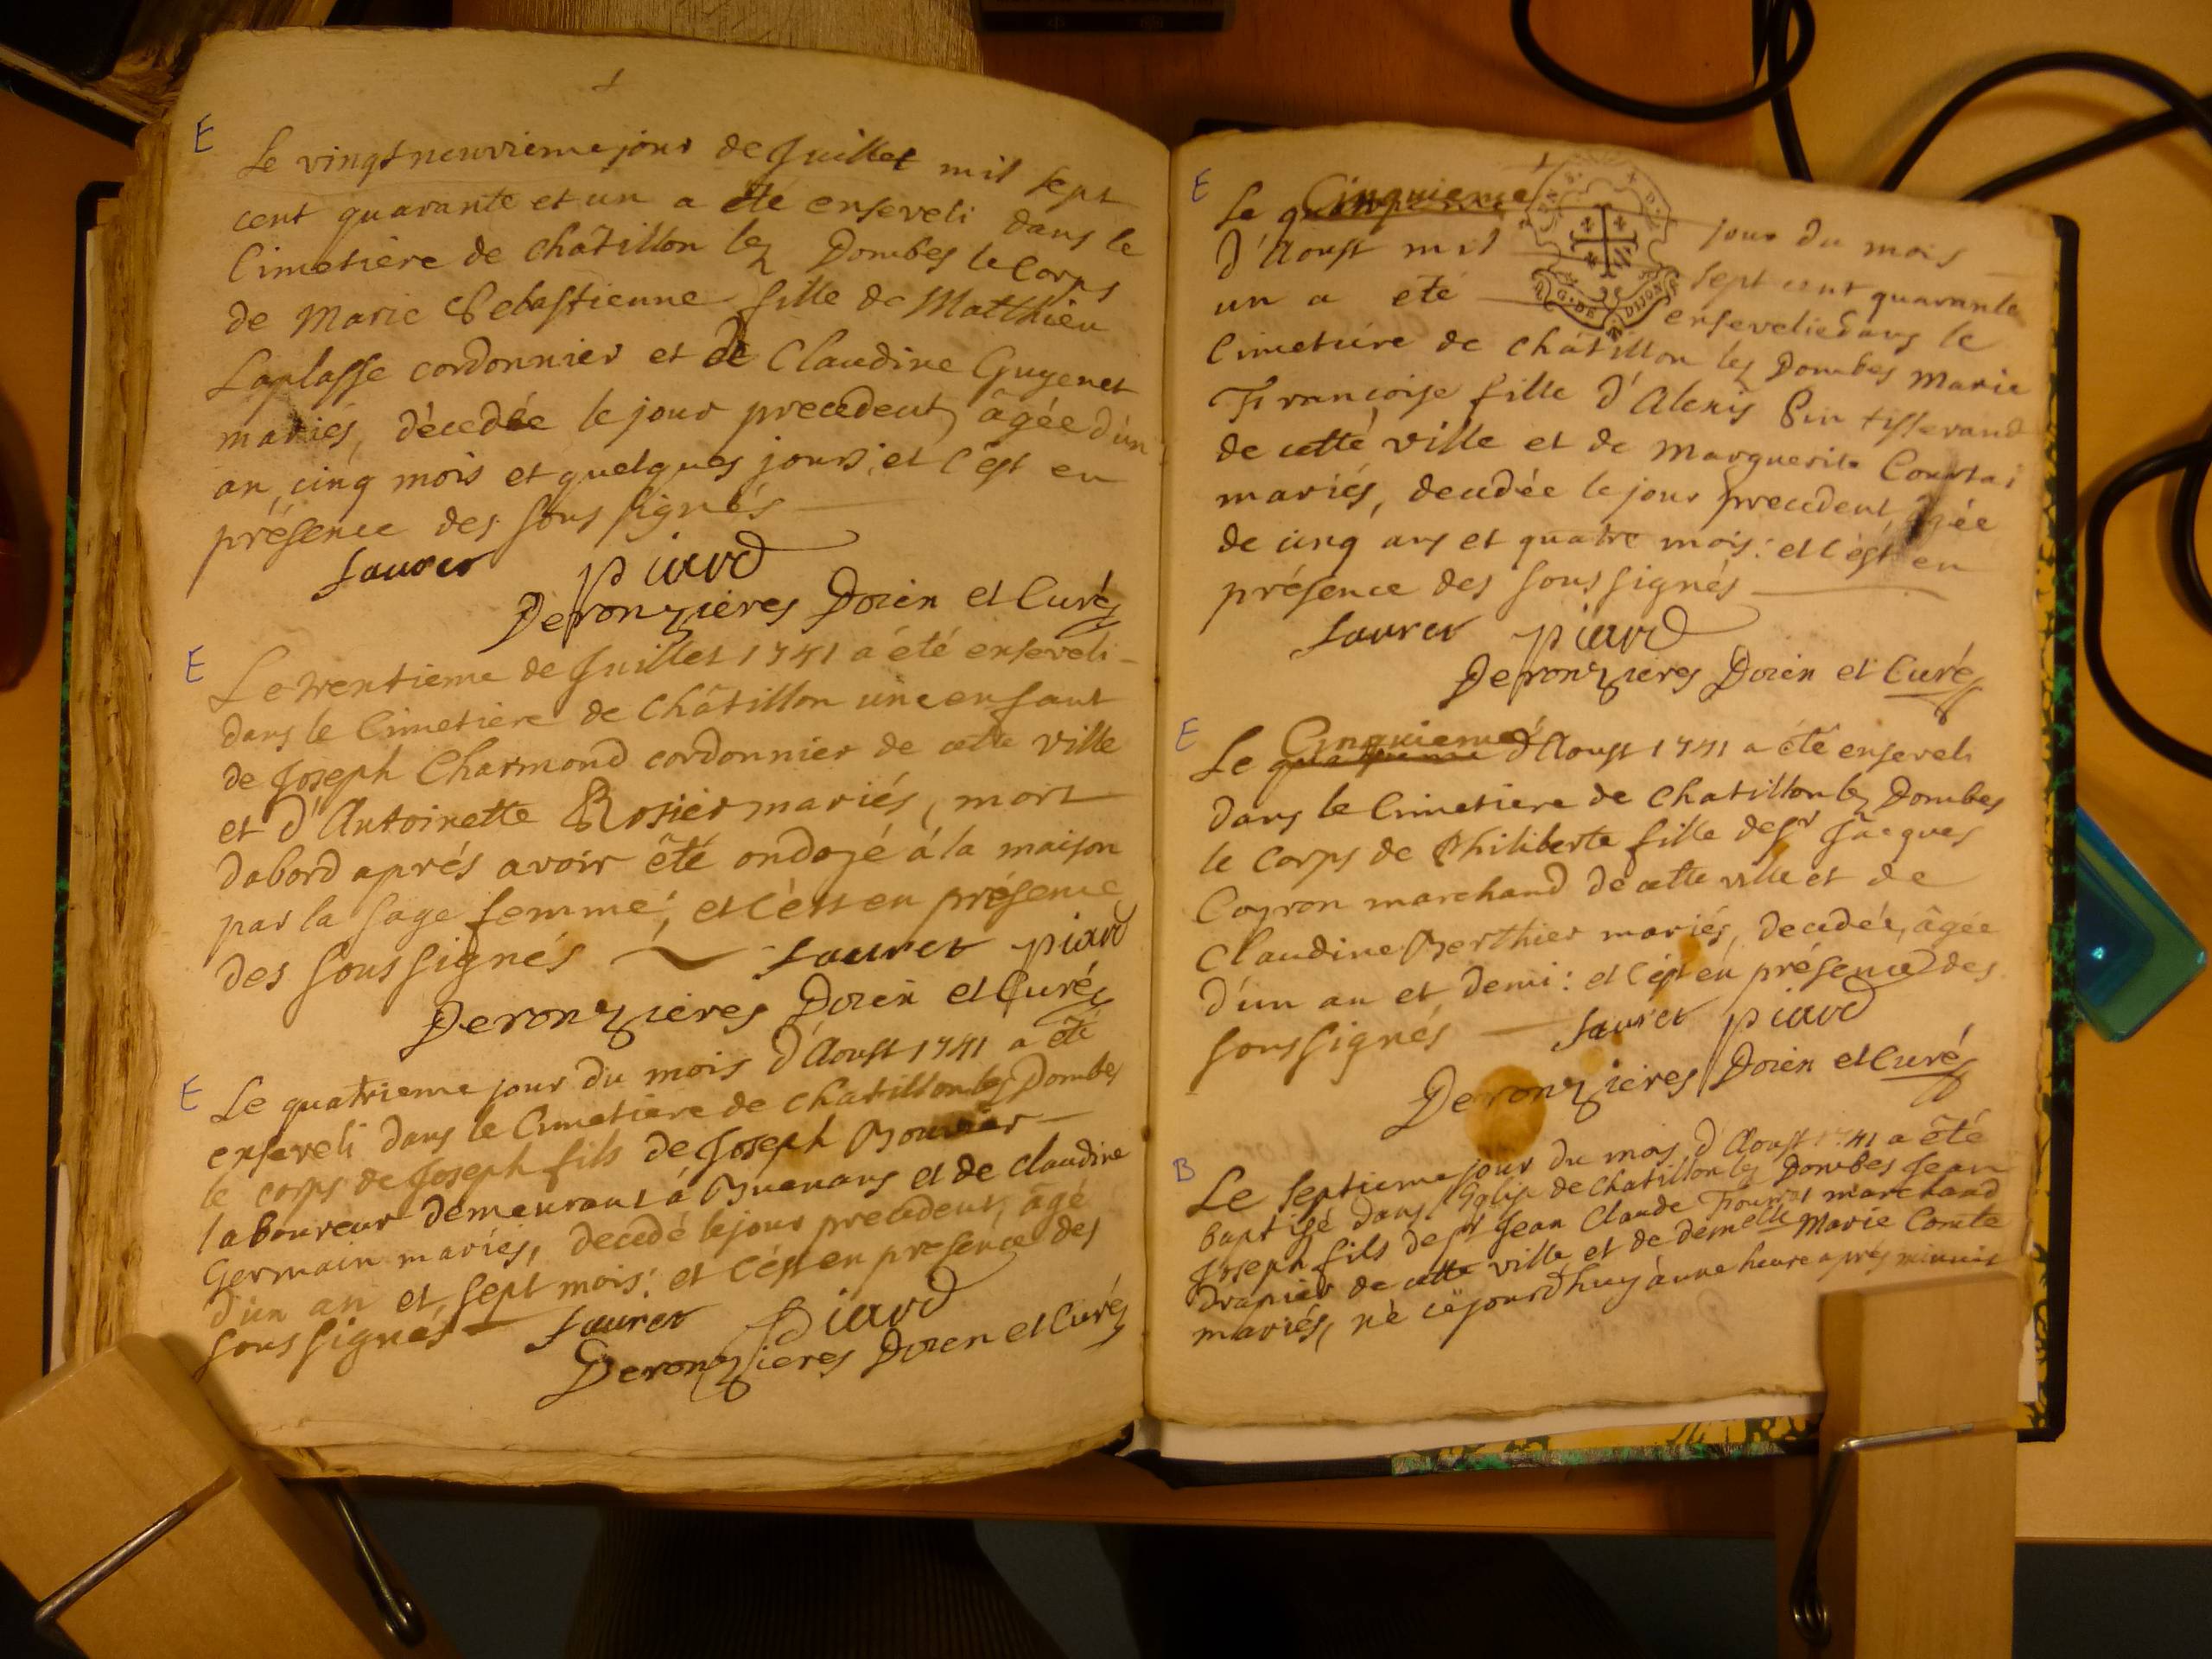 E
Le vingt neuvieme jour de Juillet mil sept
cent quarante et un a été enseveli dans le
Cimetiere de châtillon lez Dombes le Corps
de Marie Sebastienne fille de Matthieu
Laplasse cordonnier et de Claudine Guyenet
mariés, décedée le jour precedent, âgée d'un
an, cinq mois et quelques jours; et c'est en
présence des sous signés
Lauret piard
Deronzieres Doïen et Curé
E
Le trentieme de Juillet 1741 a été enseveli
dans le Cimetiere de Châtillon un enfant
de Joseph Charmond cordonnier de cette ville
et d'Antoinette Rosier mariés, mort
dabord aprés avoir été ondoyé á la maison
par la sage femme; et c'est en présence
des sous signés Lauret piard
Deronzieres Doïen et Curé
E
Le quatrieme jour du mois d'Aoust 1741 a été
enseveli dans le Cimetiere de Chatillon lez Dombes
le corps de Joseph fils de Joseph Bouvier
laboureur demeurant á Buenans et de Claudine
Germain mariés, decedé le jour precedent, âgé
d'un an et sept mois: et c'est en presence des
sous signés Lauret piard
Deronzieres Doïen et Curé
E
Le Cinquieme jour du mois
d'Aoust mil sept cent quarante
un a eté ensevelie dans le
Cimetiére de châtillon lez Dombes Marie
Françoise fille d'Alexis Pin tisserand
de cette ville et de Marguerite Courtai
mariés, decedée le jour precedent, âgée
de cinq ans et quatre mois: et c'est en
présence des sous signés
Lauret piard
Deronzieres Doïen et Curé
G. DE DIJON
E
Le Cinquieme d'Aoust 1741 a été enseveli
dans le Cimetiere de Chatillon lez Dombes
le Corps de Philiberte fille de sr Jacques
Coyron marchand de cette ville et de
Claudine Berthier mariés, decedée, âgée
d'un an et demi: et c'est en présence des
sous signés Lauret piard
Deronzieres Doïen et Curé
B
Le septieme jour du mois d'Aoust 1741 a été
baptisé dans l'Eglise de Chatillon lez Dombes Jean
Joseph fils de sr Jean Claude marchand
drapier de cette ville et de demelle Marie Comte
mariés, né cejourd'huy à une heure aprés minuit